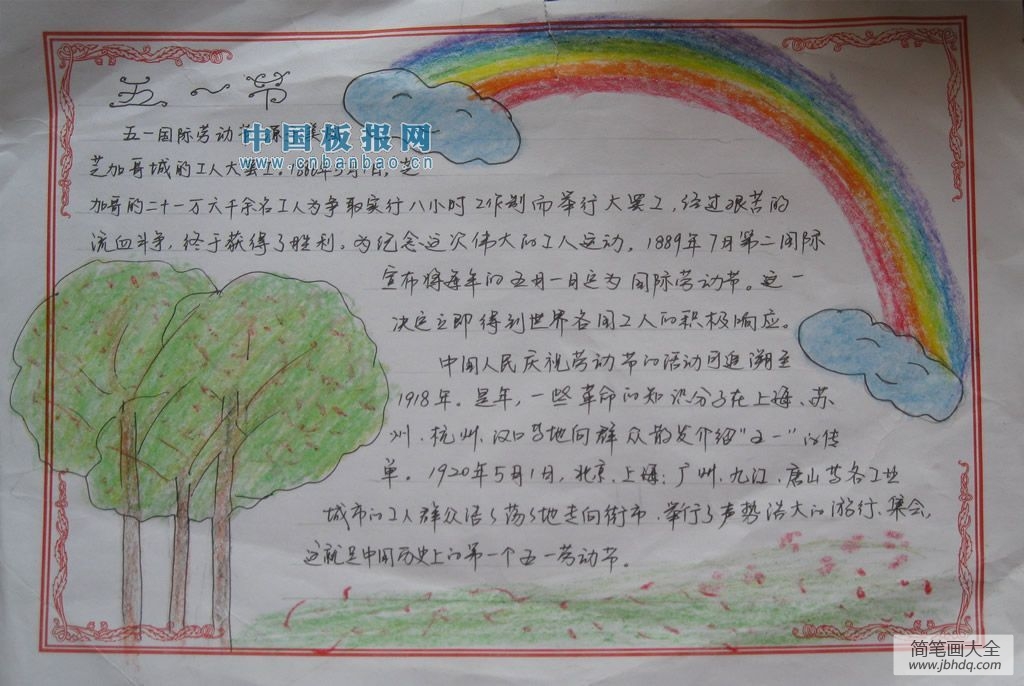 五一节
五一国际劳动节
中国板报网
www.cnbanbao.cn
芝加哥城的工人大罢工。1886年5月1日,芝
加哥的二十一万六千余名工人为争取实行八小时工作制而举行大罢工,经过艰苦的
流血斗争,终于获得了胜利。为纪念这次伟大的工人运动,1889年7月第二国际
宣布将每年的五月一日定为国际劳动节。这一
决定立即得到世界各国工人的积极响应。
中国人民庆祝劳动节的活动可追溯至
1918年。是年,一些革命的知识分子在上海、苏
州、杭州、汉口等地向群众散发介绍“五一”的传
单。1920年5月1日,北京、上海、广州、九江、唐山等各工业
城市的工人群众浩浩荡荡地走向街市、举行了声势浩大的游行、集会,
这就是中国历史上的第一个五一劳动节。
简笔画大全
www.jbhdq.com